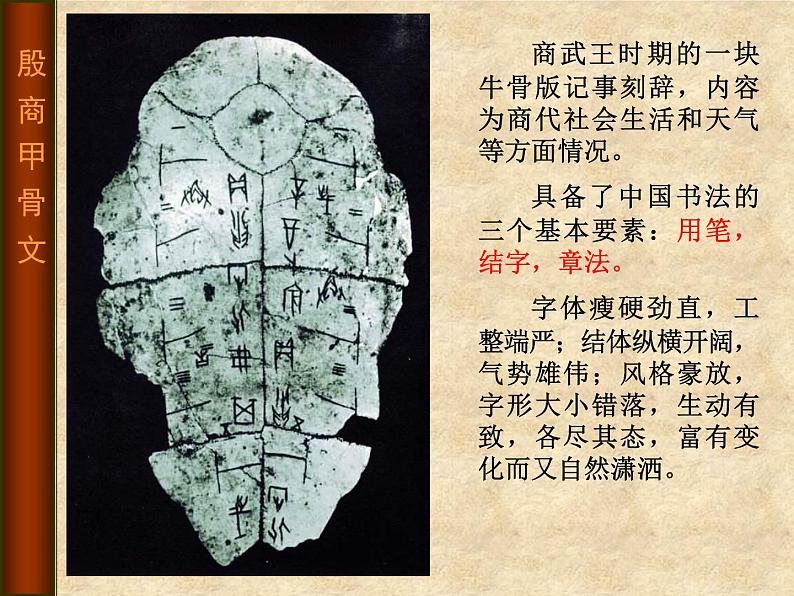 殷商甲骨文
商武王时期的一块
牛骨版记事刻辞，内容
为商代社会生活和天气
等方面情况。
具备了中国书法的
三个基本要素：用笔，
结字，章法。
字体瘦硬劲直，工
整端严；结体纵横开阔，
气势雄伟；风格豪放，
字形大小错落，生动有
致，各尽其态，富有变
化而又自然潇洒。